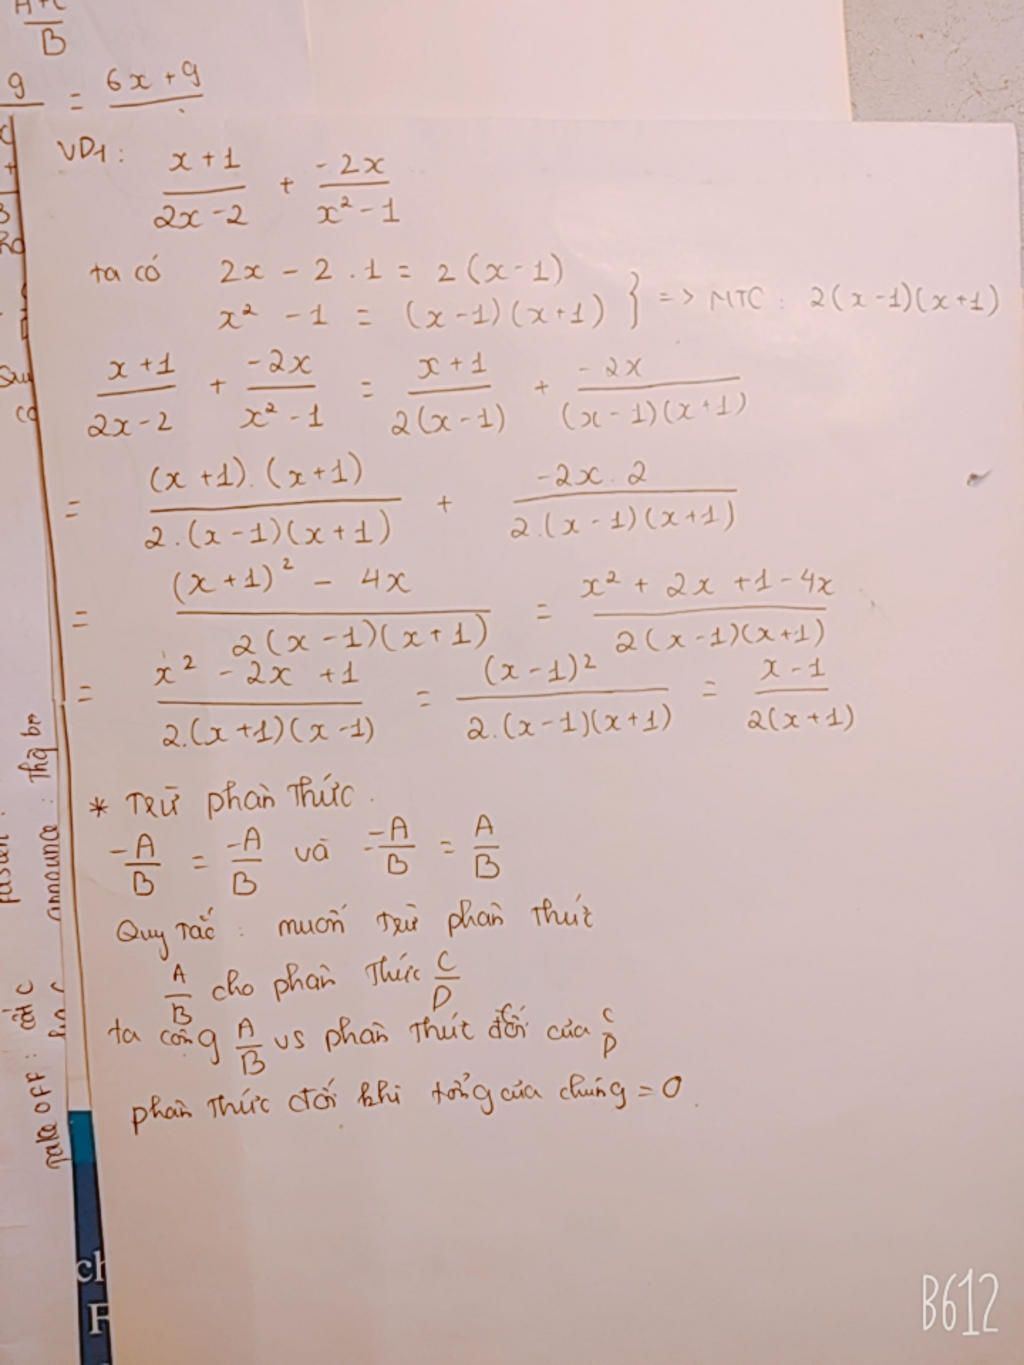 B
9 = 6x + 9
VD1: x + 1 / 2x - 2 + -2x / x² - 1
ta có 2x - 2 . 1 = 2(x - 1)
x² - 1 = (x - 1)(x + 1) } => MTC : 2(x - 1)(x + 1)
x + 1 / 2x - 2 + -2x / x² - 1 = x + 1 / 2(x - 1) + -2x / (x - 1)(x + 1)
= (x + 1).(x + 1) / 2.(x - 1)(x + 1) + -2x . 2 / 2.(x - 1)(x + 1)
= (x + 1)² - 4x / 2(x - 1)(x + 1) = x² + 2x + 1 - 4x / 2(x - 1)(x + 1)
= x² - 2x + 1 / 2.(x + 1)(x - 1) = (x - 1)² / 2.(x - 1)(x + 1) = x - 1 / 2(x + 1)
* Trừ phân thức.
-A / B = -A / B và - -A / B = A / B
Quy tắc : muốn trừ phân thức
A / B cho phân thức C / D
ta công A / B vs phân thức đối của C / D
phân thức đối khi tổng của chúng = 0.
announce : thg
Take OFF : cất c
ch
F
B612